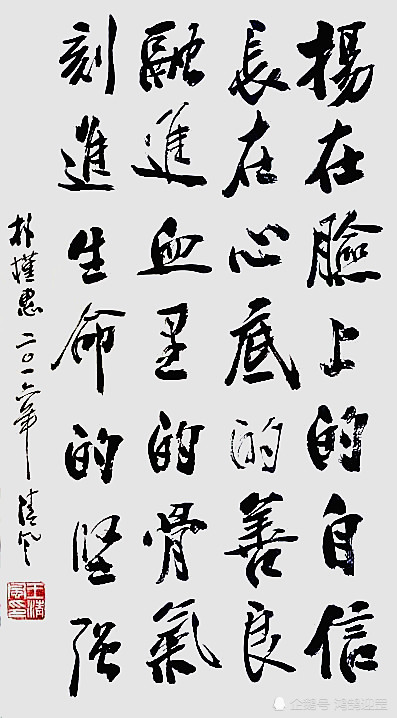 揚在臉上的自信
長在心底的善良
融進血里的骨氣
刻進生命的堅强
朴槿惠 二〇一六年 清风
企鹅号 鸿鹄迎罡